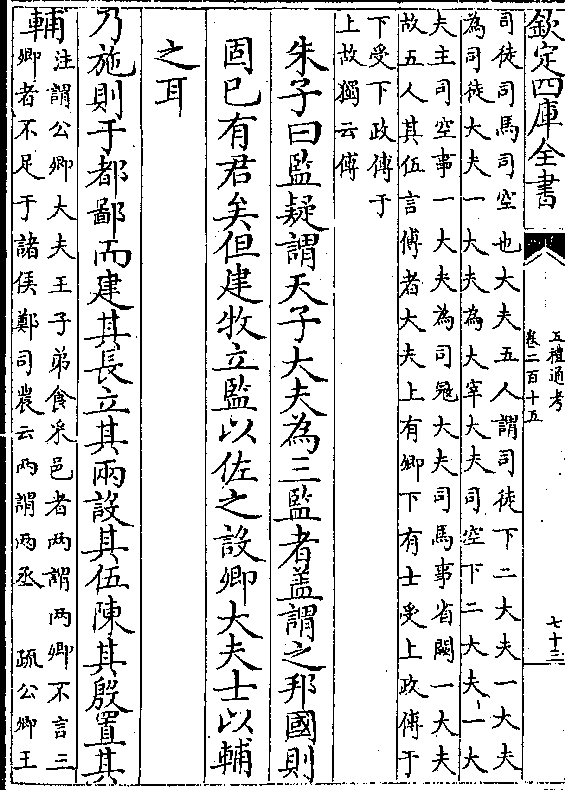 欽定四庫全書
五禮通考
卷二百十五
七十三
司徒司馬司空也大夫五人謂司徒下二大夫一大夫
為司徒大夫一大夫為大宰大夫司空下二大夫一大
夫主司空事一大夫為司冦大夫司馬事省闕一大夫
故五人其伍言傅者大夫上有卿下有士受上政傅于
下受下政傅于
上故獨云傅
朱子曰監疑謂天子大夫為三監者盖謂之邦國則
固已有君矣但建牧立監以佐之設卿大夫士以輔
之耳
乃施則于都鄙而建其長立其兩設其伍陳其殷置其
輔
注謂公卿大夫王子弟食采邑者兩謂兩卿不言三
卿者不足于諸侯鄭司農云兩謂兩丞　疏公卿王